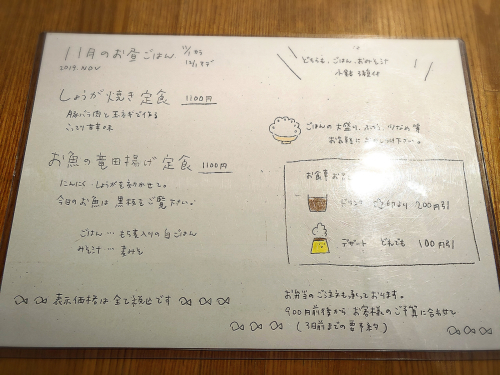 11月のお昼ごはん
2019. NOV
しょうが焼き定食 1100円
豚バラ肉と玉ネギで作る
こってり甘辛味
お魚の竜田揚げ定食 1100円
にんにく・しょうがをきかせて。
今日のお魚は黒板をご覧下さい。
ごはん … もち麦入りの白ごはん
みそ汁 … 麦みそ
表示価格は全て税込です
どちらも、ごはん、おみそ汁
小鉢 3種付
ごはんの大盛り、ふつう、少なめ 等
お気軽に 下さい。
お食事
ドリンク 200円引
デザート どれでも 100円引
お弁当のご注文も承っております。
900円前後からお客様のご予算に合わせて
(3日前までの要予約)